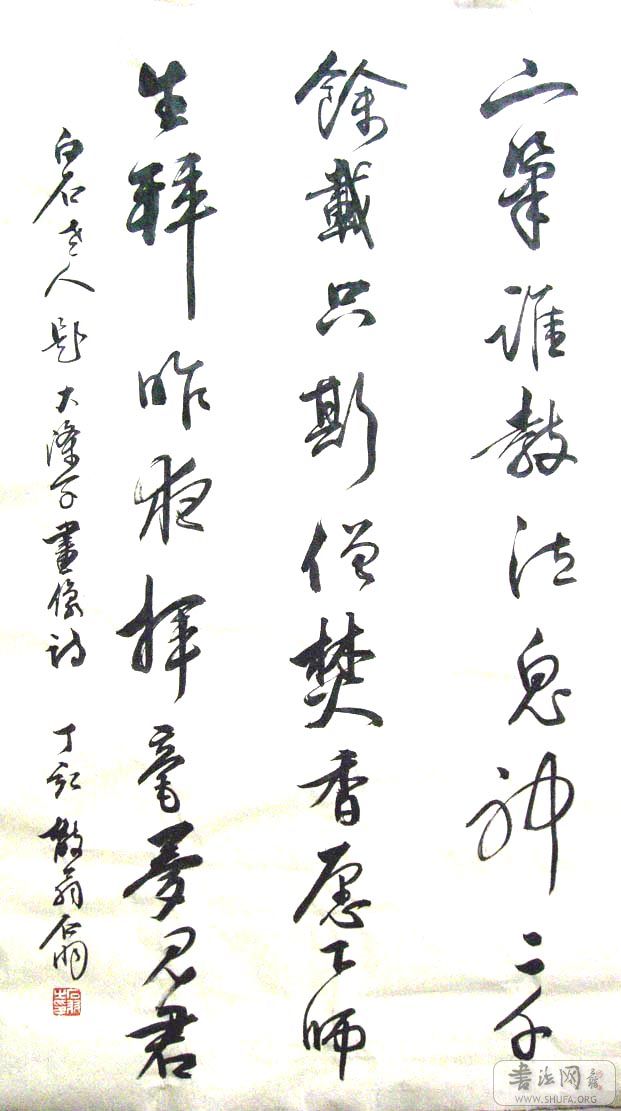 下筆誰教泣鬼神二千
餘載只斯僧焚香愿下师
生拜昨夜揮毫夢见君
白石老人題大滌子畫像詩 丁亥 散翁石
書法网
WWW.SHUFA.ORG